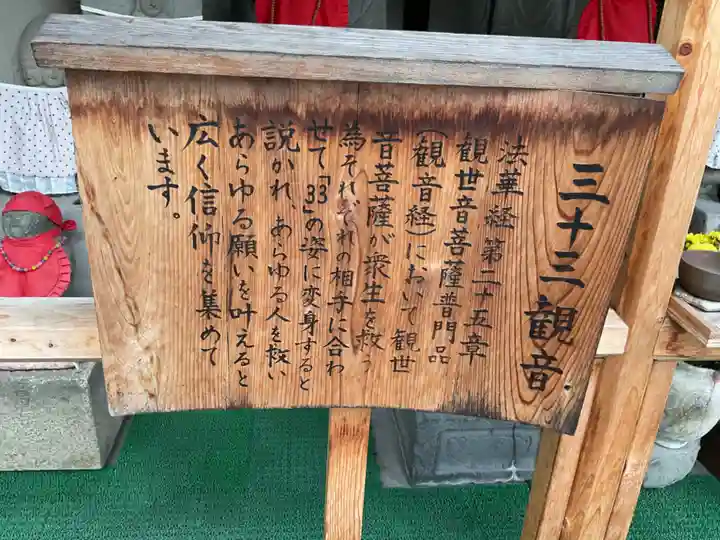 三十三観音
法華経第二十五章
観世音菩薩普門品
(観音経)において観世
音菩薩が衆生を救う
為それぞれの相手に合わ
せて「33」の姿に変身すると
説かれ、あらゆる人を救い
あらゆる願いを叶えると
広く信仰を集めて
います。